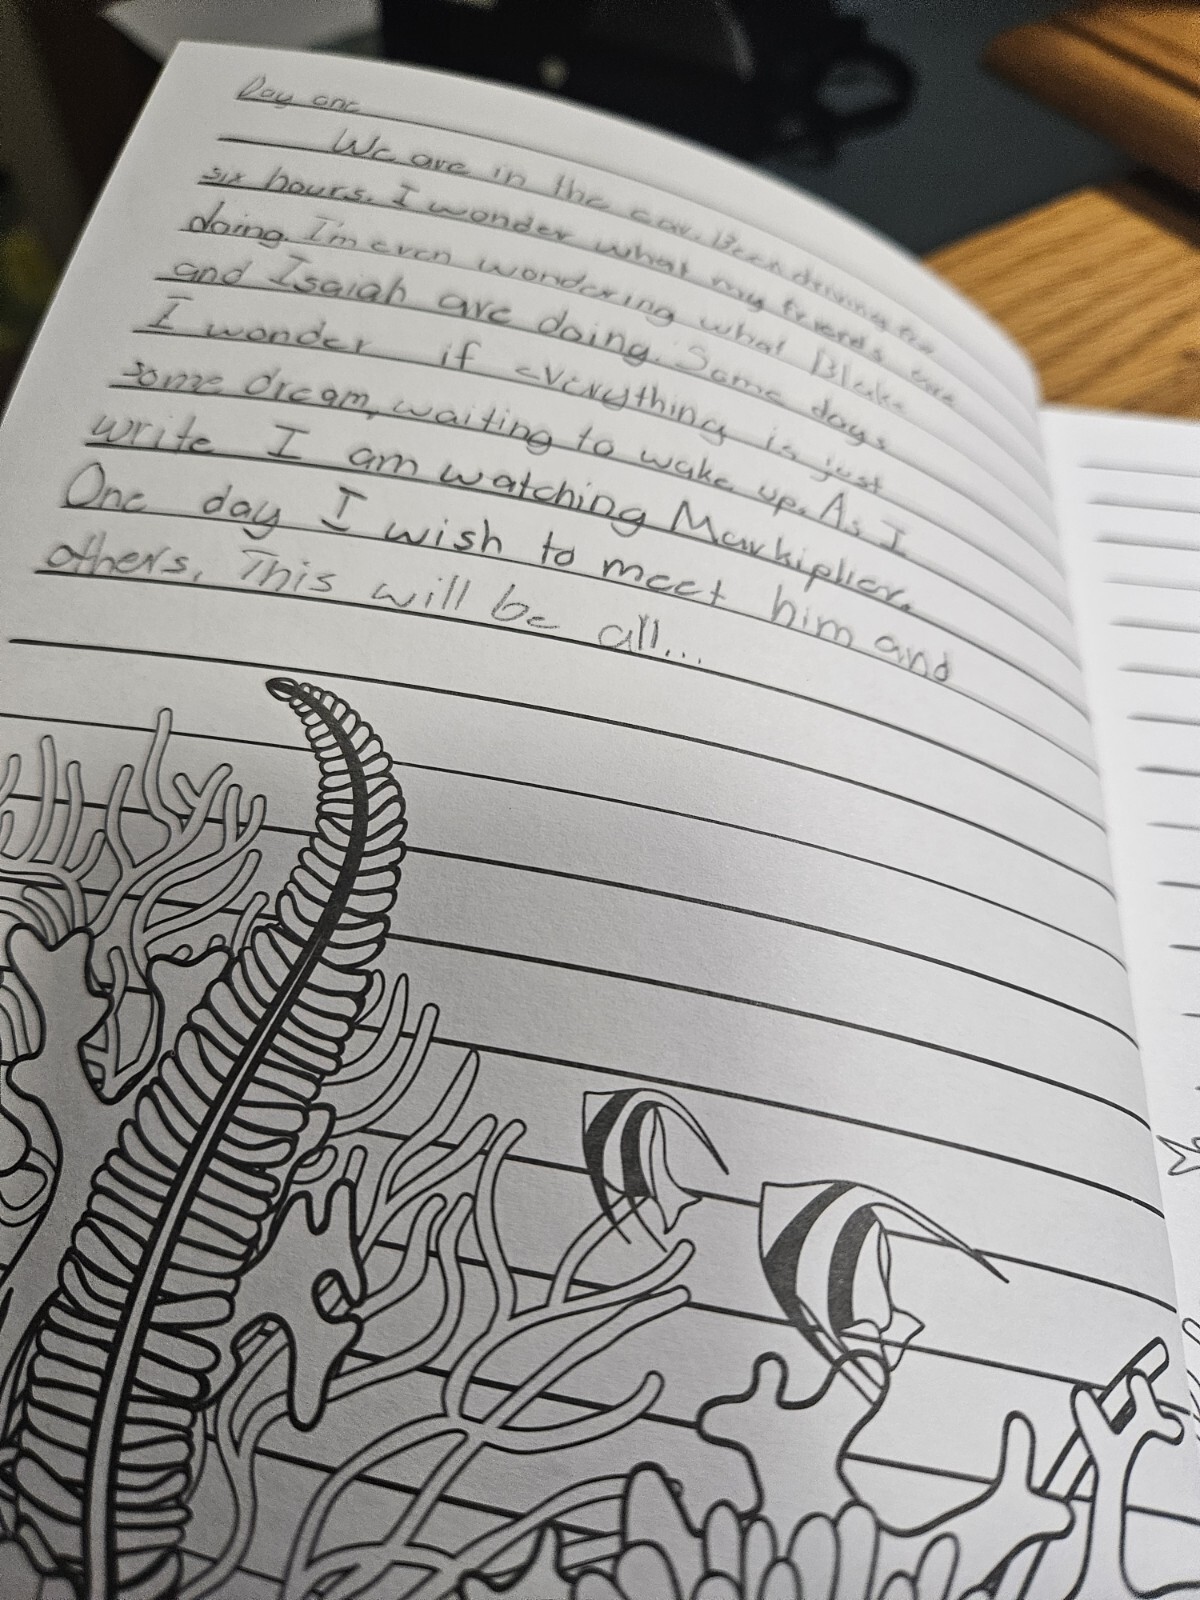 Day one
We are in the car. Been driving for
six hours. I wonder what my friends are
doing. I'm even wondering what Blake
and Isaiah are doing. Some days
I wonder if everything is just
some dream, waiting to wake up. As I
write I am watching Markiplier.
One day I wish to meet him and
others. This will be all...